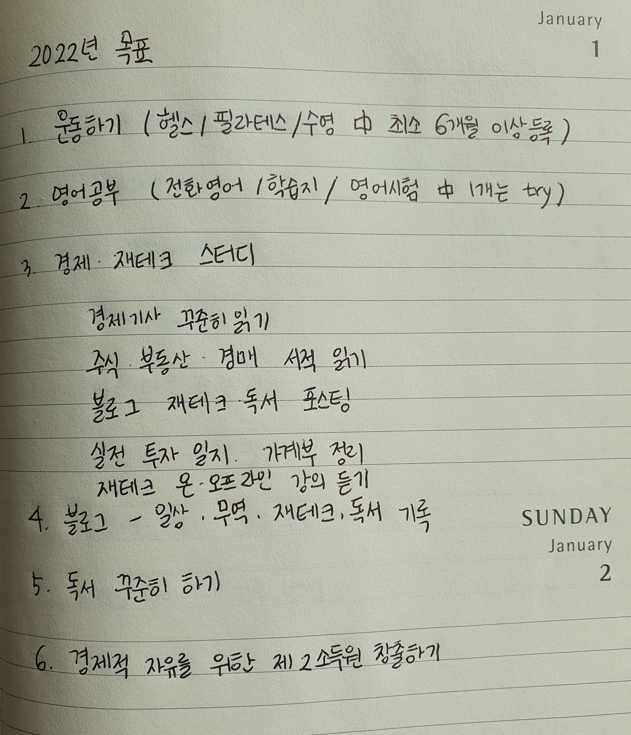 January
1
2022년 목표
1. 운동하기 (헬스/필라테스/수영 中 최소 6개월 이상등록)
2. 영어공부 (전화영어/학습지/영어시험 中 1개는 try)
3. 경제·재테크 스터디
경제기사 꾸준히읽기
주식·부동산·경매 서적 읽기
블로그 재테크·독서 포스팅
실전 투자 일지. 가계부 정리
재테크 온·오프라인 강의 듣기
4. 블로그 - 일상, 무역, 재테크, 독서 기록
SUNDAY
January
2
5. 독서 꾸준히 하기
6. 경제적 자유를 위한 제2소득원 창출하기